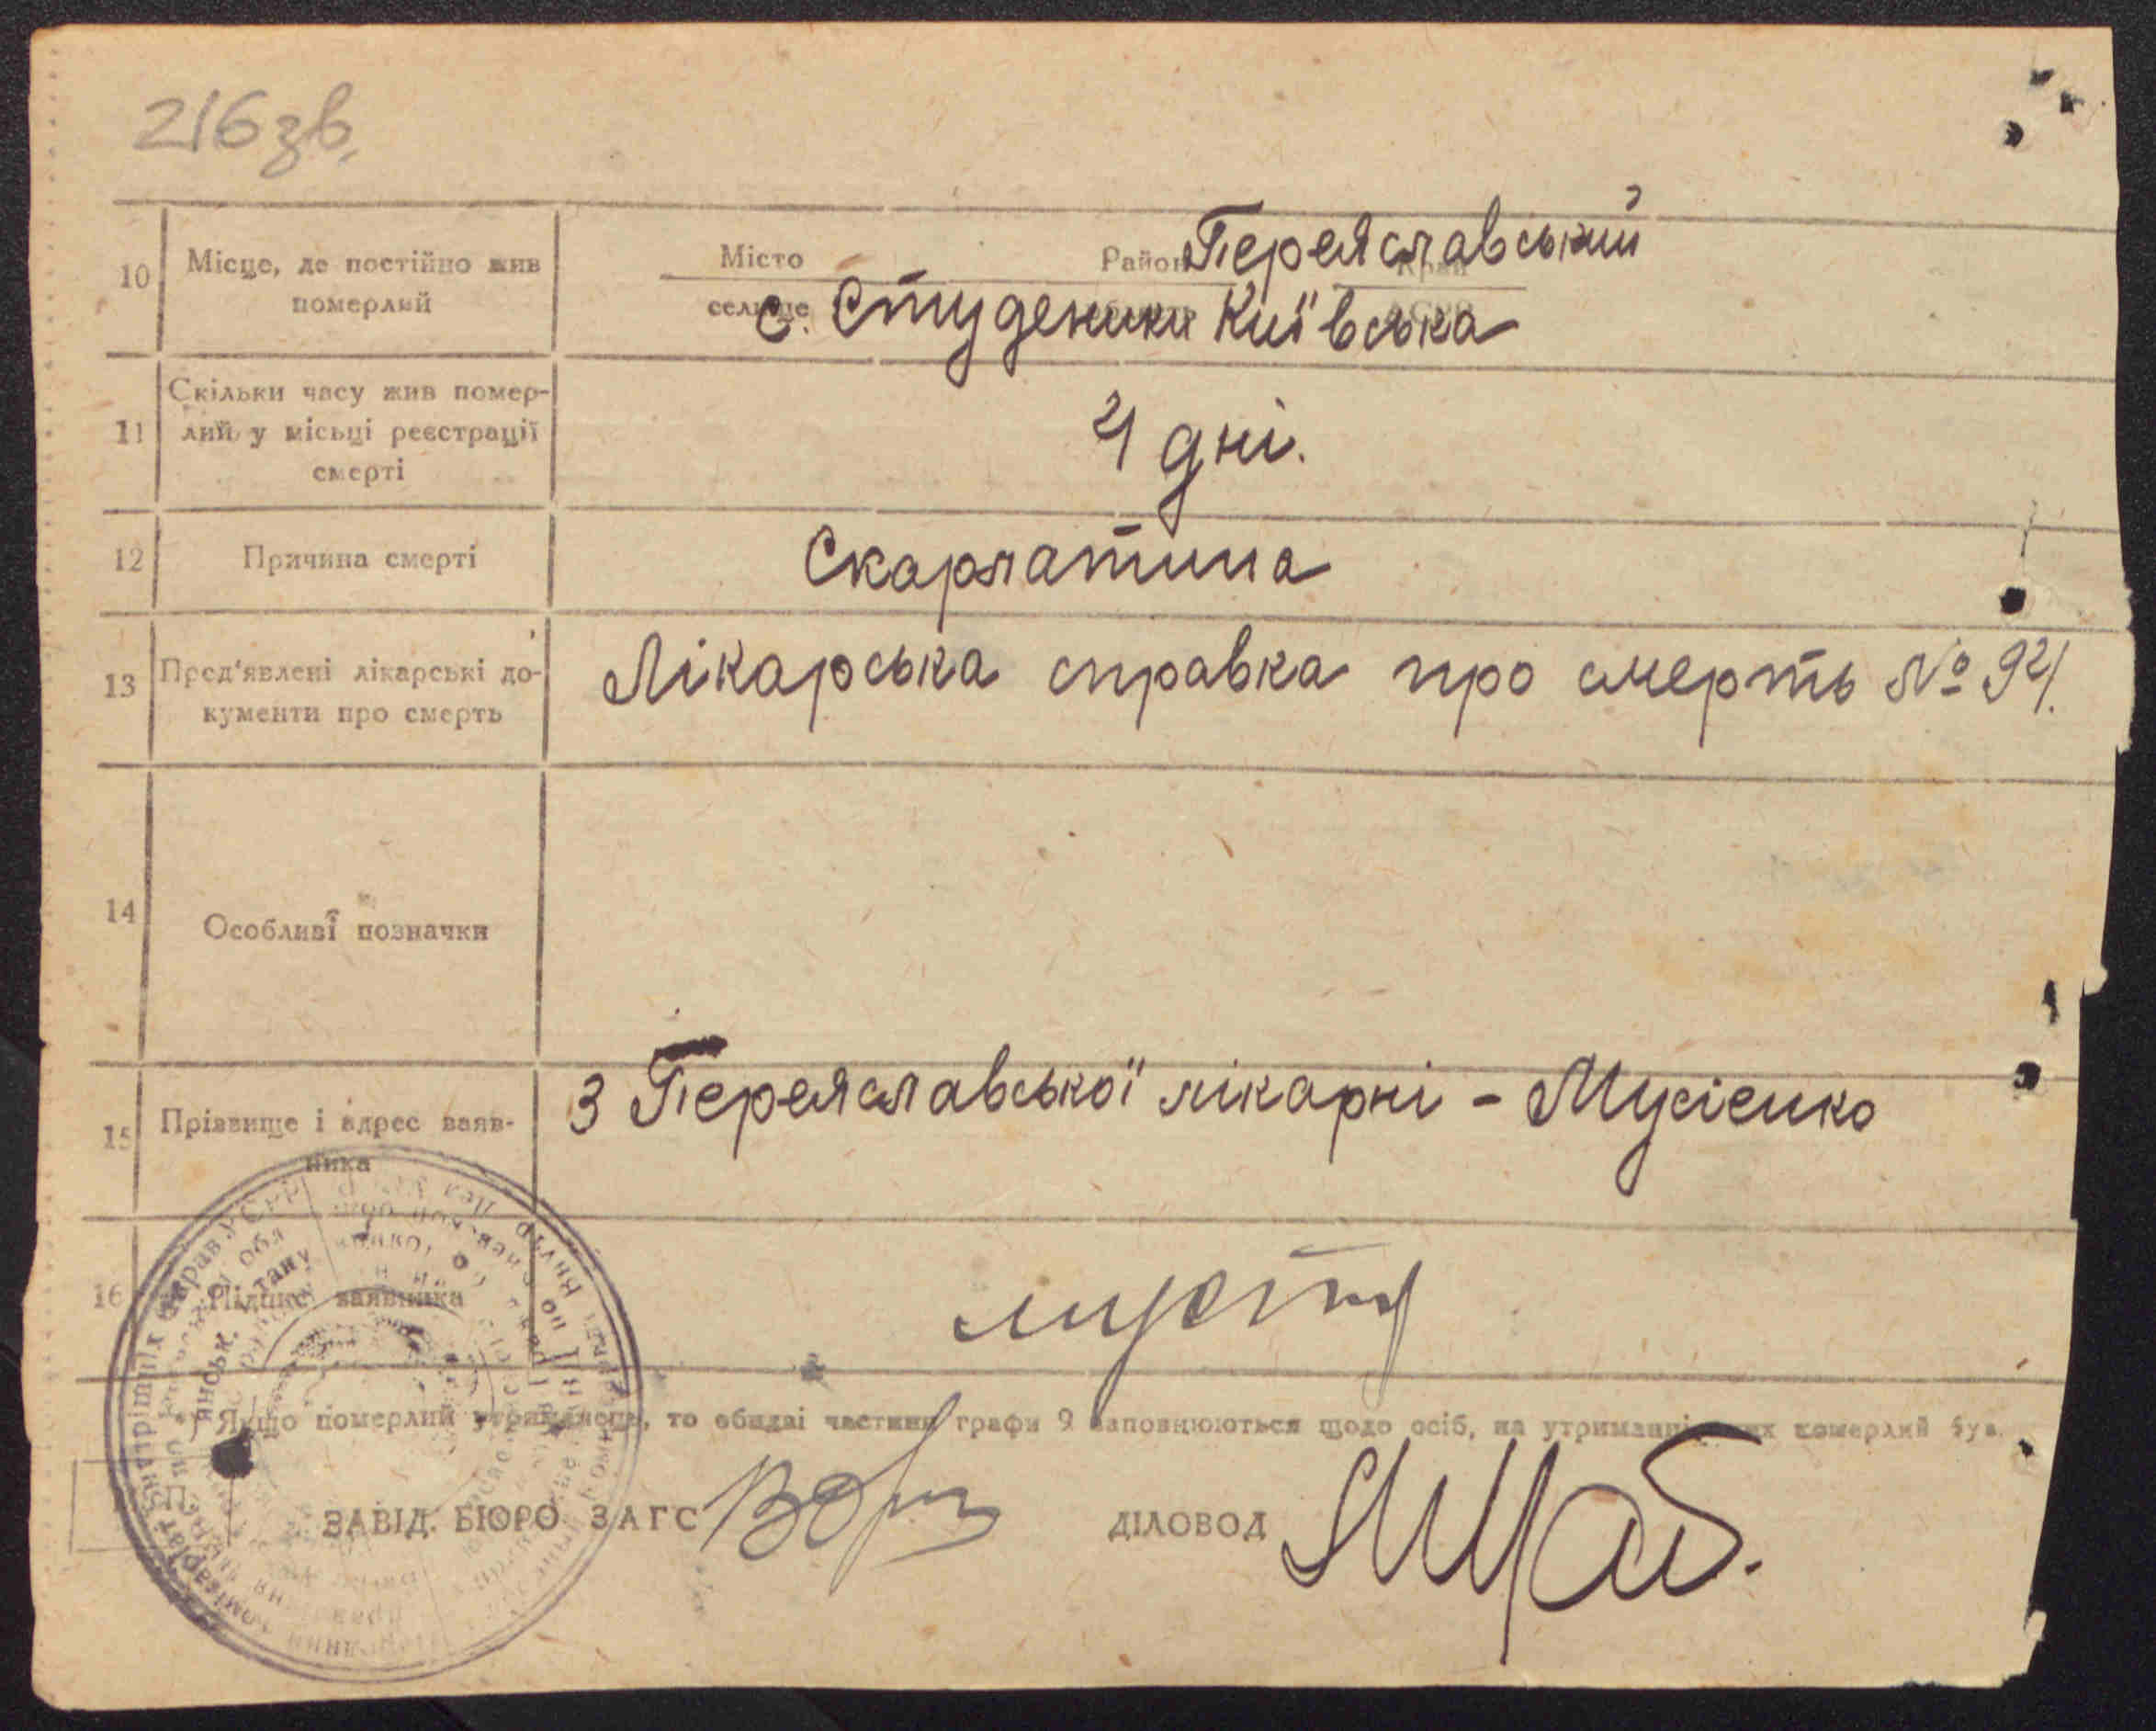 216 зв.
10 Місце, де постійно жив померлий
Місто селище Район Переяславський Край
с. Студеники Київська
11 Скільки часу жив помер-
лий у місьці реєстрації
смерті
4 дні.
12 Причина смерті
Скарлатина
13 Пред'явлені лікарські до-
кументи про смерть
Лікарська справка про смерть № 94.
14 Особливі позначки
15 Прізвище і адрес заяв-
ника
З Переяславської лікарні - Мусієнко
16 Підпис заявника
Якщо померлий утриманець, то обидві частини графи 9 заповнюються щодо осіб, на утриманні яких померлий був.
ЗАВІД. БЮРО ЗАГС
ДІЛОВОД